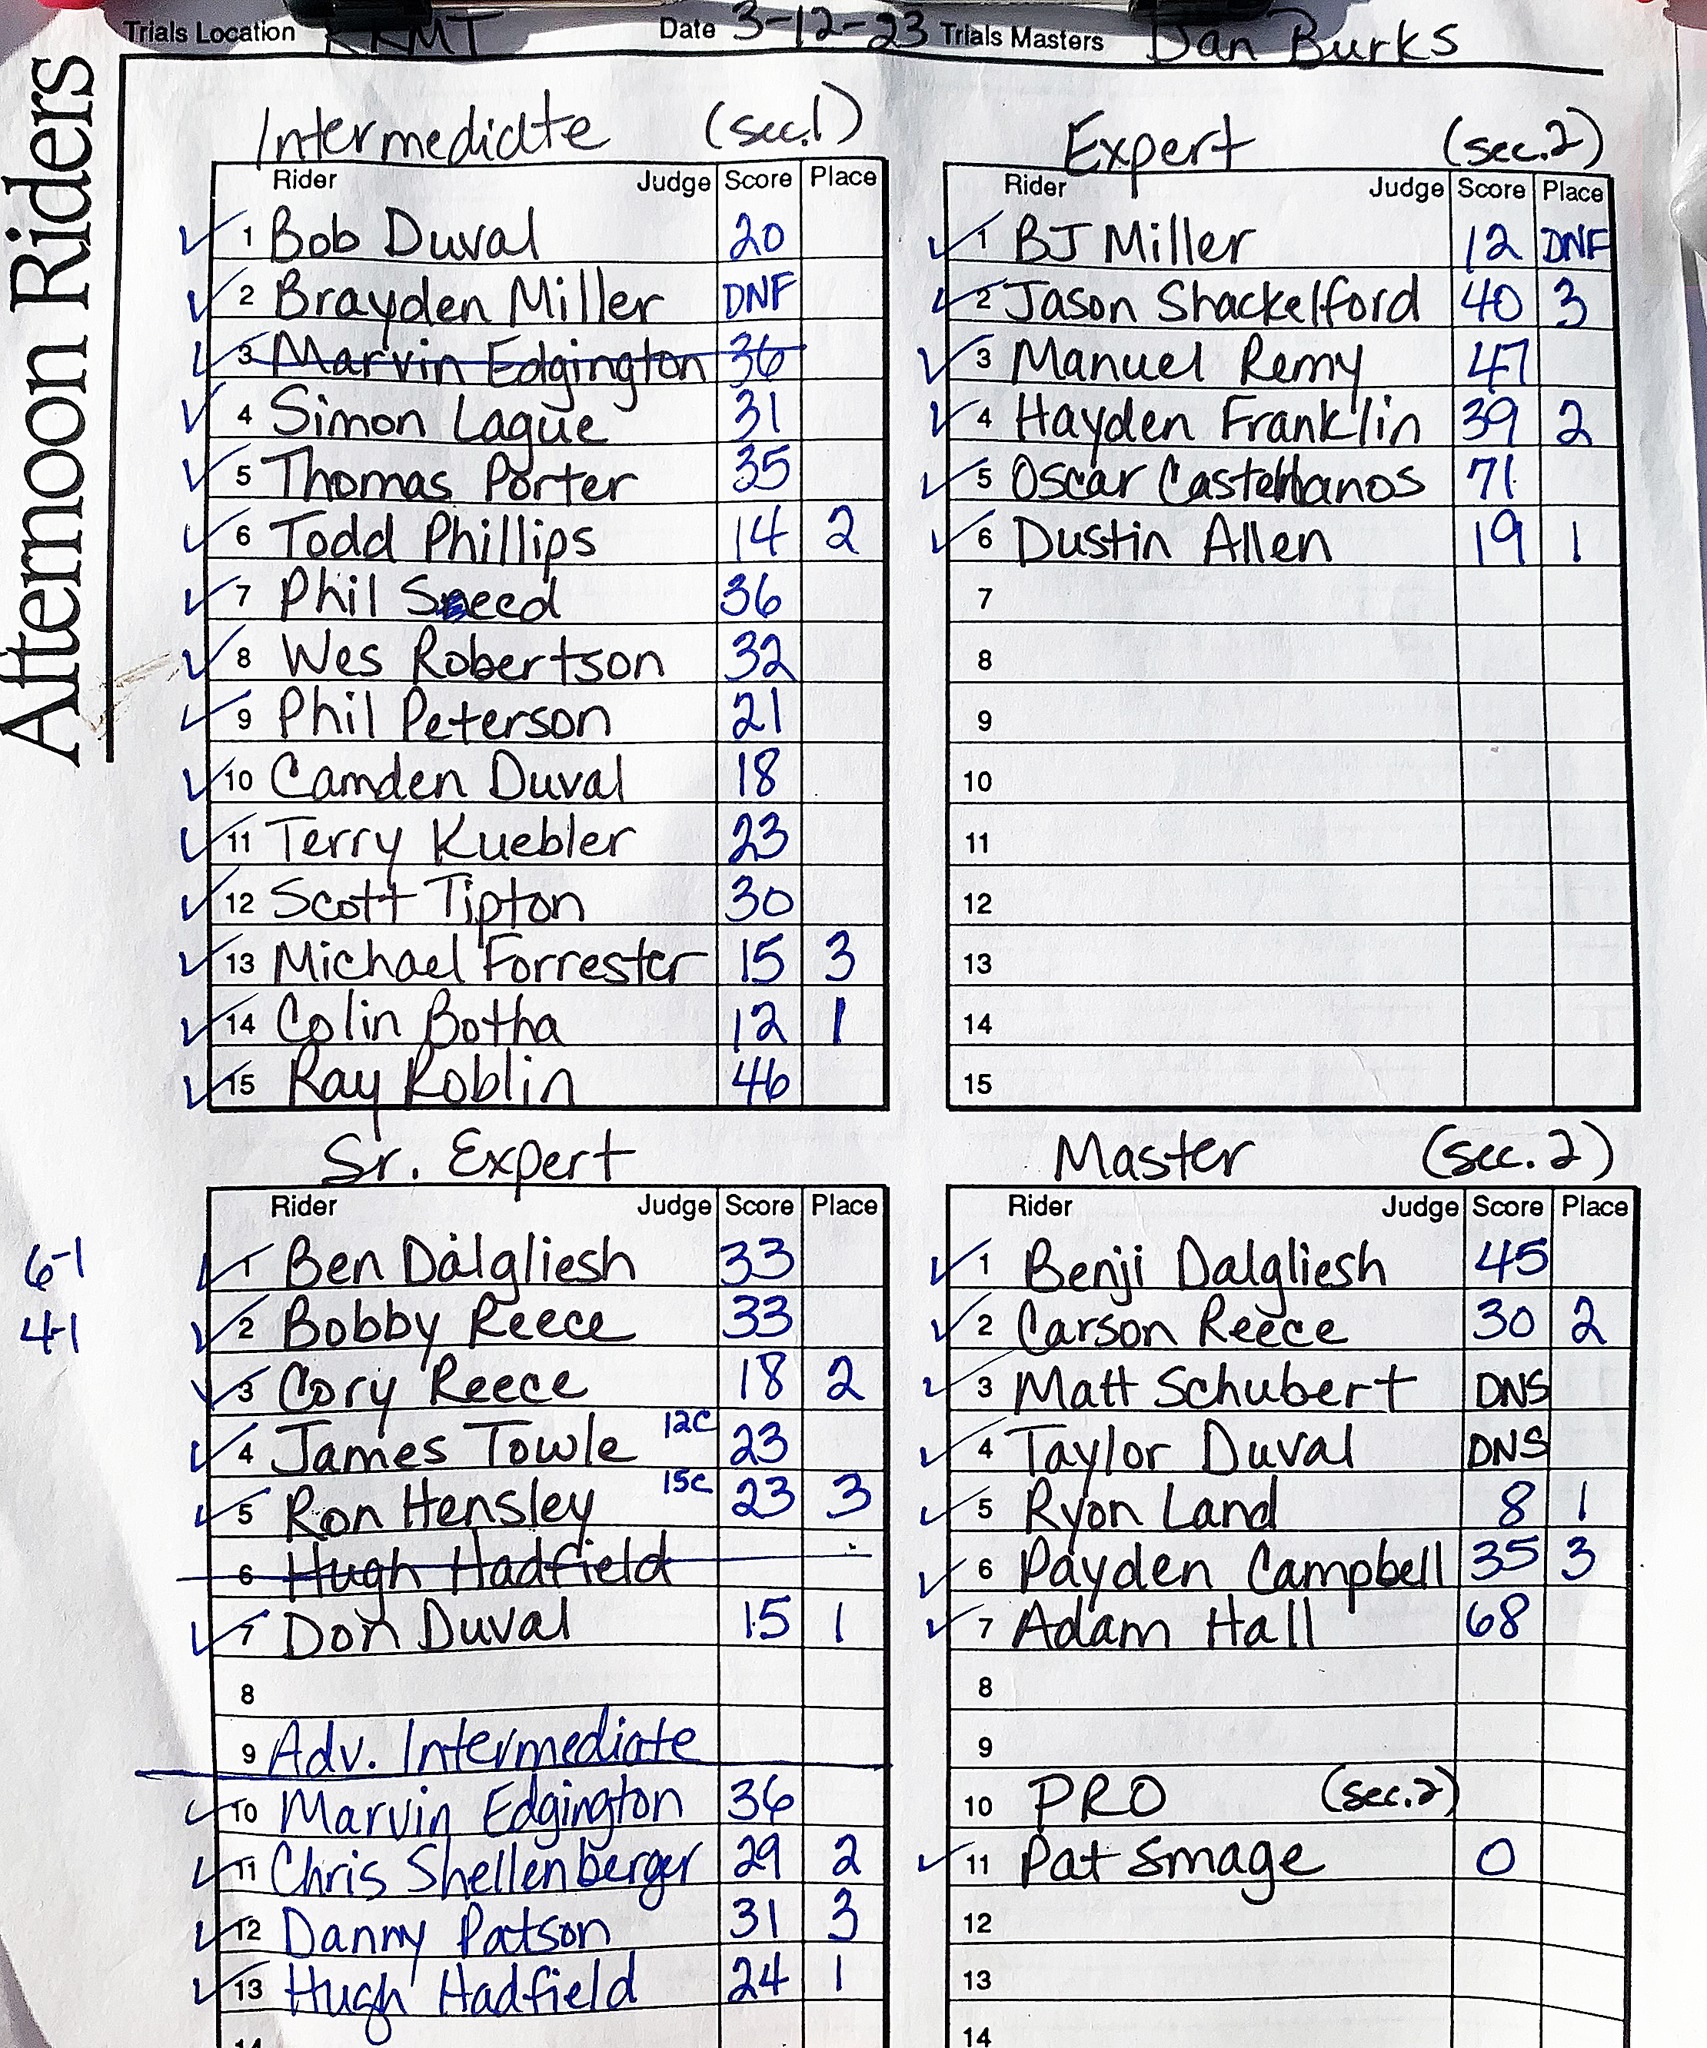 Trials Location KKMT Date 3-12-23 Trials Masters Dan Burks
Afternoon Riders
Intermediate (sec.1)
Rider Judge Score Place
1 Bob Duval 20
2 Brayden Miller DNF
3 Marvin Edgington 36
4 Simon Lague 31
5 Thomas Porter 35
6 Todd Phillips 14 2
7 Phil Sneed 36
8 Wes Robertson 32
9 Phil Peterson 21
10 Camden Duval 18
11 Terry Kuebler 23
12 Scott Tipton 30
13 Michael Forrester 15 3
14 Colin Botha 12 1
15 Ray Roblin 46
Expert (sec.2)
Rider Judge Score Place
1 BJ Miller 12 DNF
2 Jason Shackelford 40 3
3 Manuel Remy 47
4 Hayden Franklin 39 2
5 Oscar 71
6 Dustin Allen 19 1
7
8
9
10
11
12
13
14
15
Sr. Expert
Rider Judge Score Place
6-1 1 Ben Dalgliesh 33
4-1 2 Bobby Reece 33
3 Cory Reece 18 2
4 James Towle 12C 23
5 Ron Hensley 15C 23 3
6 Hugh Hadfield
7 Don Duval 15 1
8
9 Adv. Intermediate
10 Marvin Edgington 36
11 Chris Shellenberger 29 2
12 Danny Patson 31 3
13 Hugh Hadfield 24 1
14
Master (sec. 2)
Rider Judge Score Place
1 Benji Dalgliesh 45
2 Carson Reece 30 2
3 Matt Schubert DNS
4 Taylor Duval DNS
5 Ryon Land 8 1
6 Payden Campbell 35 3
7 Adam Hall 68
8
9
10 PRO (sec.2)
11 Pat Smage 0
12
13
14